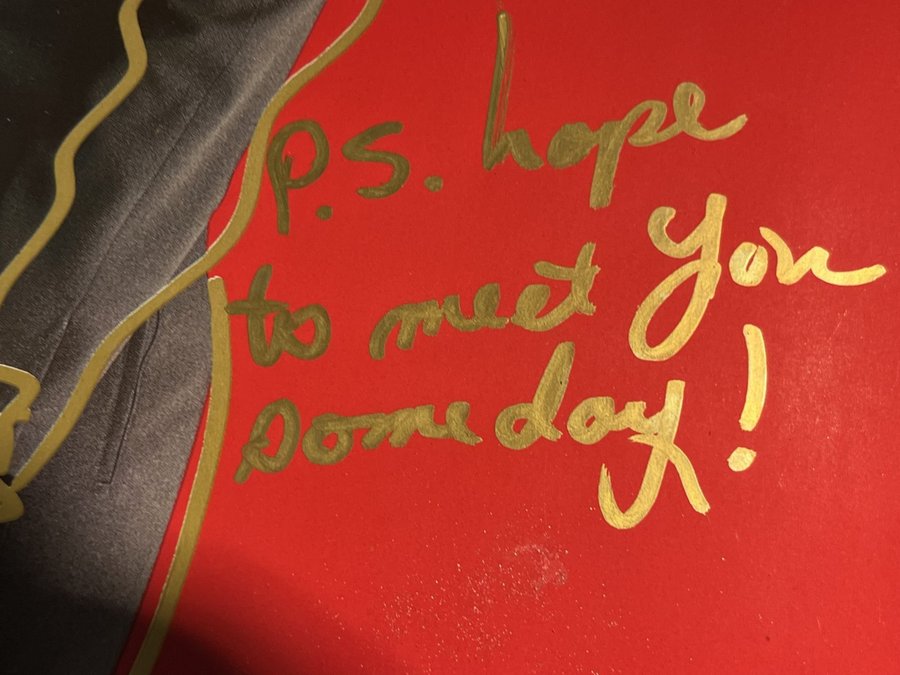 P.S. hope
to meet you
someday!